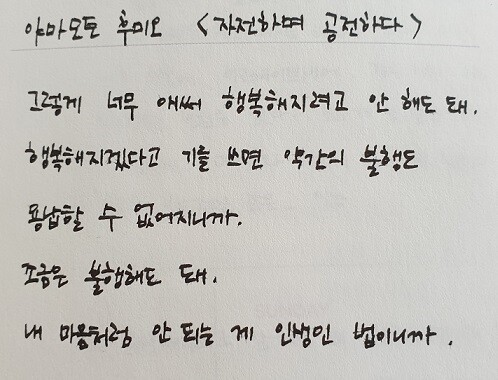 야마모토 후미오 <자전하며 공전하다>
그렇게 너무 애써 행복해지려고 안 해도 돼.
행복해지겠다고 기를 쓰면 약간의 불행도
용납할 수 없어지니까.
조금은 불행해도 돼.
내 마음처럼 안 되는 게 인생인 법이니까.